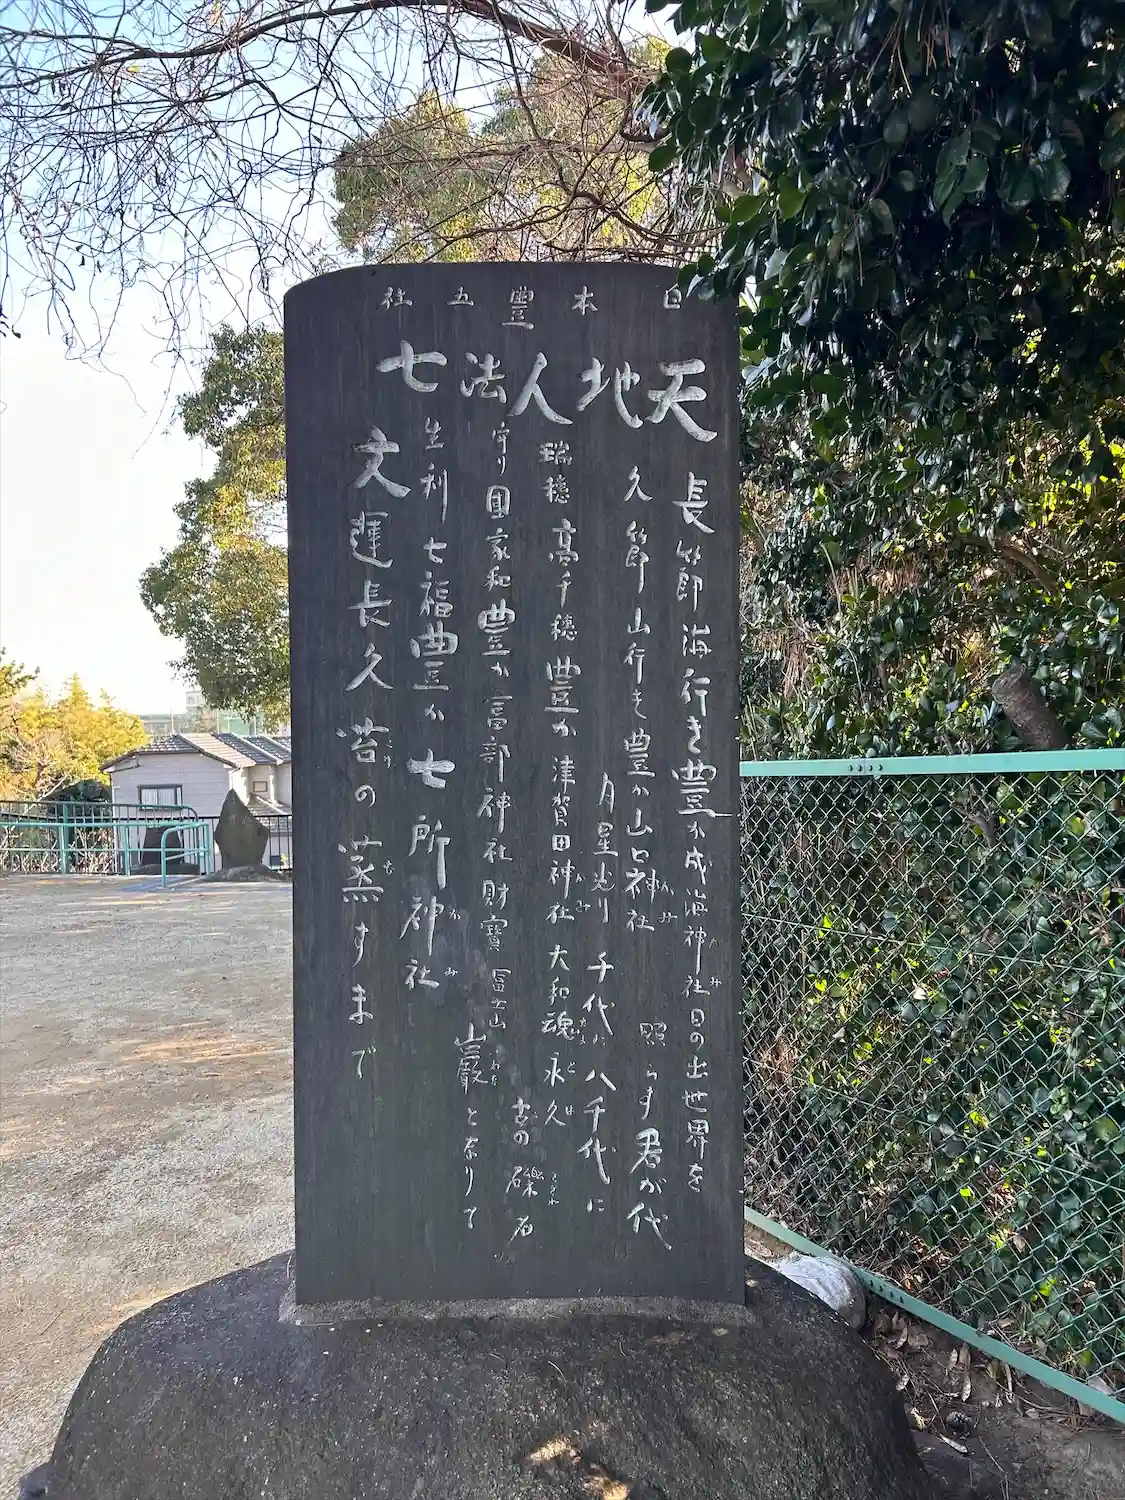 日本豊五社
天長節海行き豊か成海神社日の出世界を
照らす君が代
地久節山行き豊か山口神社
月星光り千代に八千代に
人瑞穂高千穂豊か津賀田神社大和魂永久
古の礫石
法守り国家和豊か富部神社財寶冨士山
巌となりて
七生利七福豊か七所神社
文運長久苔の蒸すまで